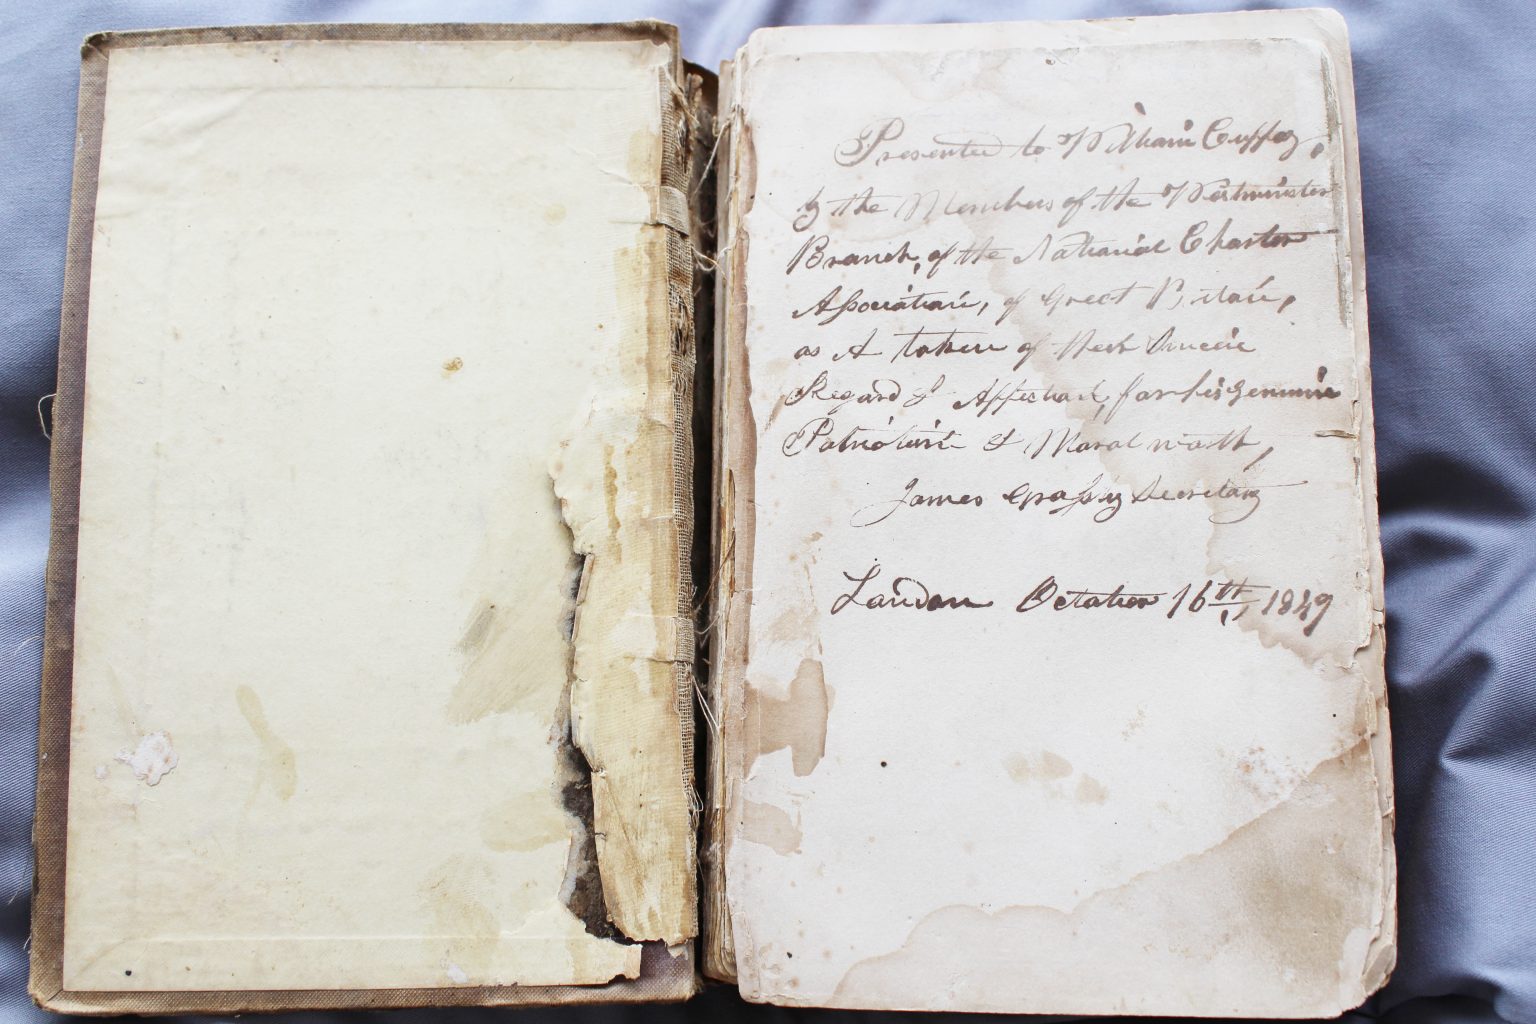 Presented to William Cuffay,
by the Members of the Westminster
Branch, of the National Charter
Association, of Great Britain,
as A token of their Sincere
Regard & Affection, for his Genuine
Patriotism & Moral worth,
James Grassby Secretary
London October 16th, 1849